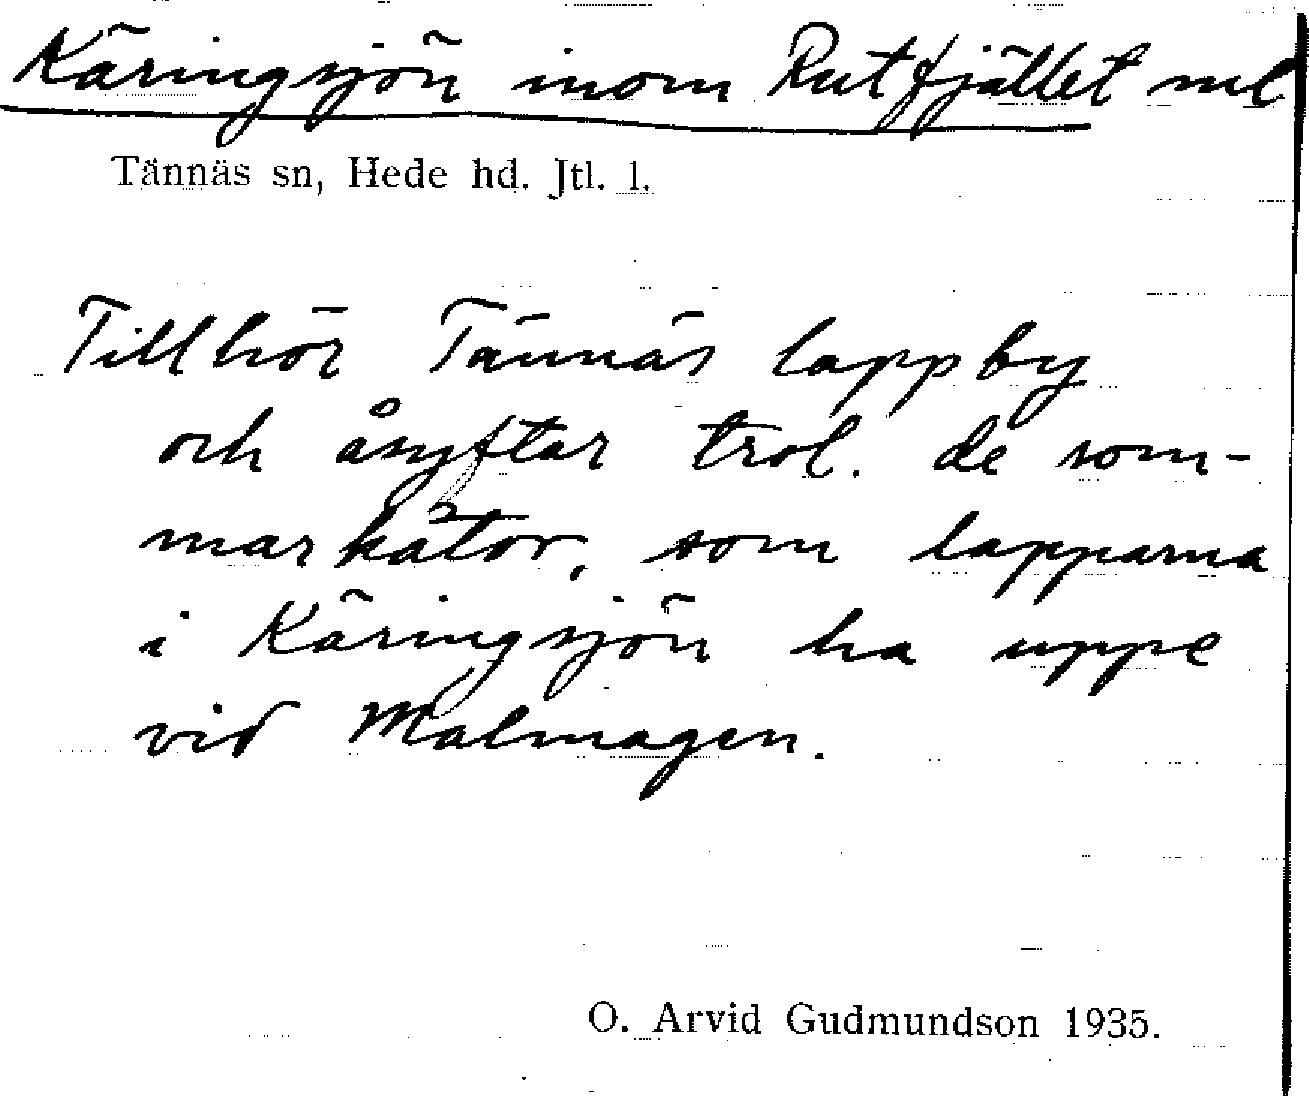 Käringsjön inom Rutfjället
Tännäs sn, Hede hd. Jtl. l.
Tillhör Tännäs lappby
och åsyftar trol. de som-
markåtor, som lapparna
i Käringsjön ha uppe
vid Malmagen.
O. Arvid Gudmundson 1935.